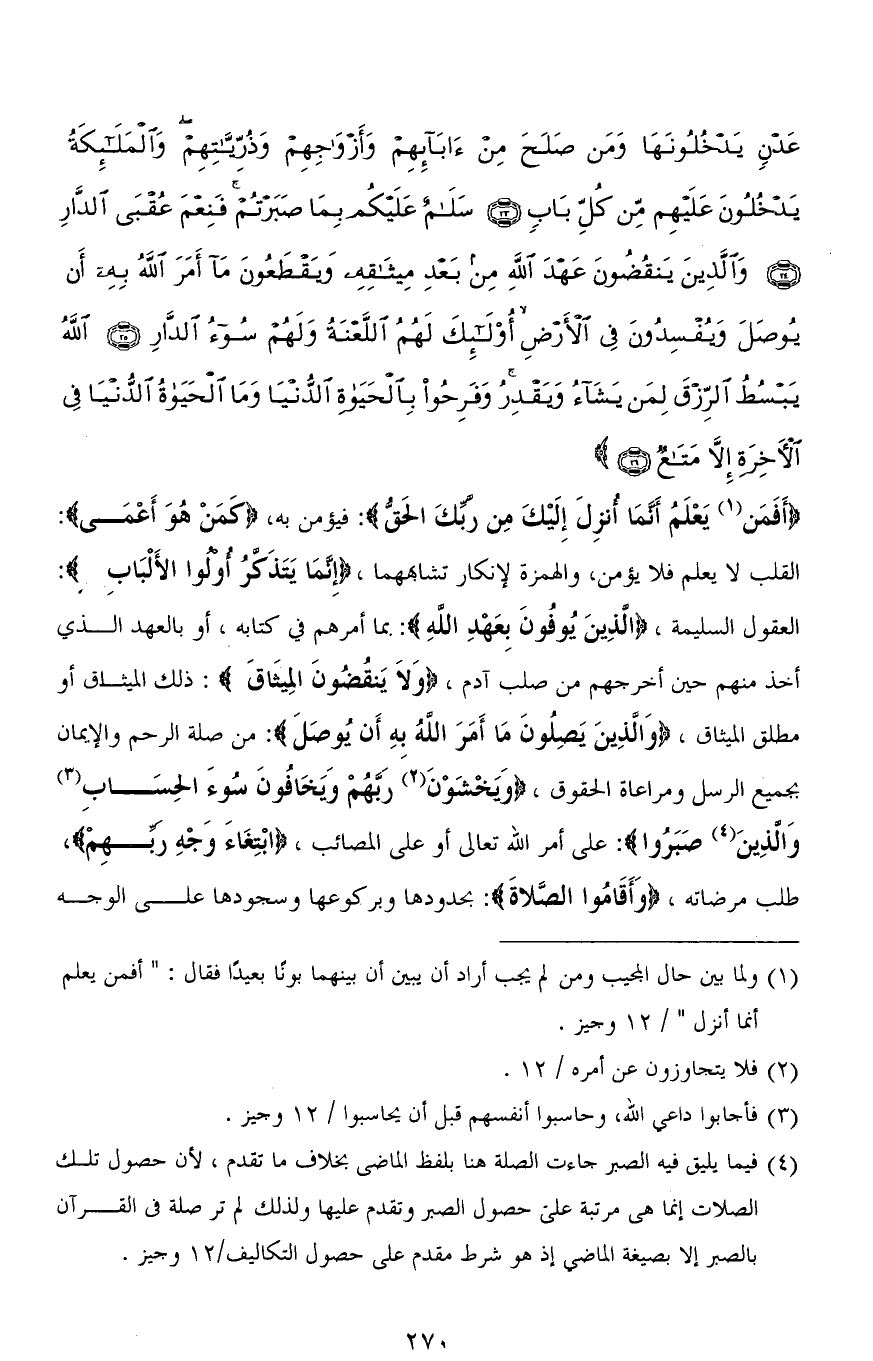 عَدْنٍ يَدْخُلُونَهَا وَمَن صَلَحَ مِنْ ءَابَآئِهِمْ وَأَزْوَٰجِهِمْ وَذُرِّيَّٰتِهِمْ ۖ وَٱلْمَلَٰٓئِكَةُ
يَدْخُلُونَ عَلَيْهِم مِّن كُلِّ بَابٍ ٢٣ سَلَٰمٌ عَلَيْكُم بِمَا صَبَرْتُمْ ۚ فَنِعْمَ عُقْبَى ٱلدَّارِ
٢٤ وَٱلَّذِينَ يَنقُضُونَ عَهْدَ ٱللَّهِ مِنۢ بَعْدِ مِيثَٰقِهِۦ وَيَقْطَعُونَ مَآ أَمَرَ ٱللَّهُ بِهِۦٓ أَن
يُوصَلَ وَيُفْسِدُونَ فِى ٱلْأَرْضِ ۙ أُو۟لَٰٓئِكَ لَهُمُ ٱللَّعْنَةُ وَلَهُمْ سُوٓءُ ٱلدَّارِ ٢٥ ٱللَّهُ
يَبْسُطُ ٱلرِّزْقَ لِمَن يَشَآءُ وَيَقْدِرُ ۚ وَفَرِحُوا۟ بِٱلْحَيَوٰةِ ٱلدُّنْيَا وَمَا ٱلْحَيَوٰةُ ٱلدُّنْيَا فِى
ٱلْأَخِرَةِ إِلَّا مَتَٰعٌ ٢٦ ﴾
﴿أَفَمَن(١) يَعْلَمُ أَنَّمَا أُنزِلَ إِلَيْكَ مِن رَّبِّكَ الحَقُّ﴾: فيؤمن به، ﴿كَمَنْ هُوَ أَعْمَى﴾:
القلب لا يعلم فلا يؤمن، والهمزة لإنكار تشابههما ، ﴿إِنَّمَا يَتَذَكَّرُ أُوْلُوا الأَلْبَابِ ﴾:
العقول السليمة ، ﴿الَّذِينَ يُوفُونَ بِعَهْدِ اللَّهِ﴾: بما أمرهم في كتابه ، أو بالعهد الذي
أخذ منهم حين أخرجهم من صلب آدم ، ﴿وَلاَ يَنقُضُونَ المِيثَاقَ ﴾ : ذلك الميثاق أو
مطلق الميثاق ، ﴿وَالَّذِينَ يَصِلُونَ مَا أَمَرَ اللَّهُ بِهِ أَن يُوصَلَ﴾: من صلة الرحم والإيمان
بجميع الرسل ومراعاة الحقوق ، ﴿وَيَخْشَوْنَ(٢) رَبَّهُمْ وَيَخَافُونَ سُوءَ الحِسَابِ(٣)
وَالَّذِينَ(٤) صَبَرُوا﴾: على أمر الله تعالى أو على المصائب ، ﴿ابْتِغَاءَ وَجْهِ رَبِّهِمْ﴾،
طلب مرضاته ، ﴿وَأَقَامُوا الصَّلاةَ﴾: بحدودها وبركوعها وسجودها على الوجه
(١) ولما بين حال المجيب ومن لم يجب أراد أن يبين أن بينهما بونًا بعيدًا فقال : " أفمن يعلم
أنما أنزل " / ١٢ وجيز .
(٢) فلا يتجاوزون عن أمره / ١٢ .
(٣) فأجابوا داعي الله، وحاسبوا أنفسهم قبل أن يحاسبوا / ١٢ وجيز .
(٤) فيما يليق فيه الصبر جاءت الصلة هنا بلفظ الماضى بخلاف ما تقدم ، لأن حصول تلك
الصلات إنما هى مرتبة على حصول الصبر وتقدم عليها ولذلك لم تر صلة فى القرآن
بالصبر إلا بصيغة الماضي إذ هو شرط مقدم على حصول التكاليف/١٢ وجيز .
٢٧٠